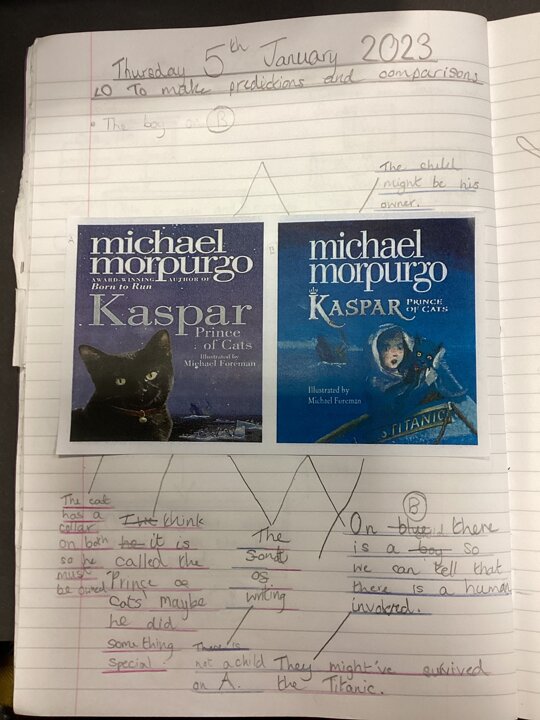 Thursday 5th January 2023
LO To make predictions and comparisons
• The boy on B
The child
might be his
owner.
A
michael
morpurgo
AWARD-WINNING AUTHOR OF
Born to Run
Kaspar
Prince
of Cats
Illustrated by
Michael Foreman
B
michael
morpurgo
KASPAR PRINCE
OF CATS
Illustrated by
Michael Foreman
TITANIC
The cat
has a
collar
on both
so he
must
be owned
think
it is
called the
Prince of
Cats maybe
he did
something
special
The
font
of
writing
There is
not a child
on A.
B
On blue there
is a boy so
we can tell that
there is a human
involved.
They might've survived
the Titanic.